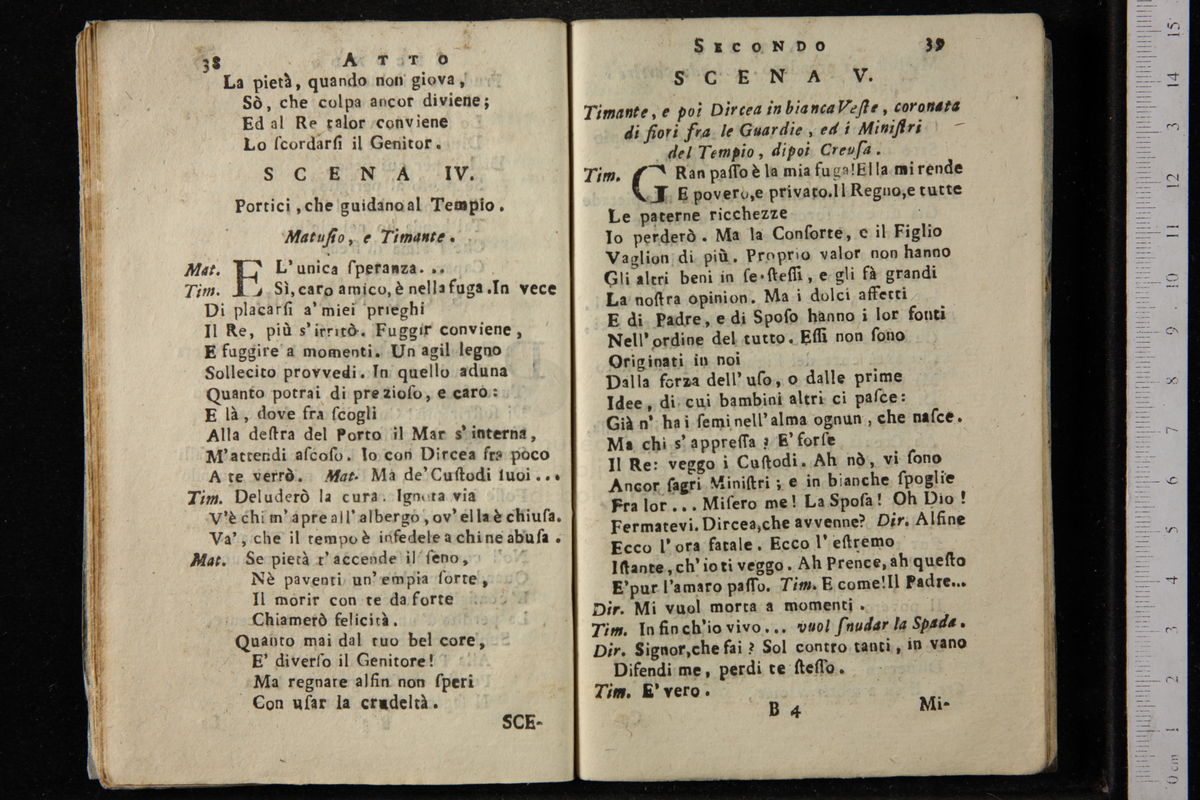 38 ATTO
La pietà, quando non giova,
Sò, che colpa ancor diviene;
Ed al Re talor conviene
Lo ſcordarſi il Genitor.
SCENA IV.
Portici, che guidano al Tempio.
Matuſio, e Timante.
Mat. E L'unica ſperanza...
Tim. Sì, caro amico, è nella fuga. In vece
Di placarſi a' miei prieghi
Il Re, più s'irritò. Fuggir conviene,
E fuggire a momenti. Un agil legno
Sollecito provvedi. In quello aduna
Quanto potrai di prezioſo, e caro:
E là, dove fra ſcogli
Alla deſtra del Porto il Mar s'interna,
M'attendi aſcoſo. Io con Dircea fra poco
A te verrò. Mat. Ma de' Cuſtodi ſuoi...
Tim. Deluderò la cura. Ignota via
V'è chi m'apre all'albergo, ov'ella è chiuſa.
Va', che il tempo è infedele a chi ne abuſa.
Mat. Se pietà t'accende il ſeno,
Nè paventi un'empia ſorte,
Il morir con te da forte
Chiamerò felicità.
Quanto mai dal tuo bel core,
E' diverſo il Genitore!
Ma regnare alfin non ſperi
Con uſar la crudeltà.
SCE-
SECONDO 39
SCENA V.
Timante, e poi Dircea in bianca Veſte, coronata
di fiori fra le Guardie, ed i Miniſtri
del Tempio, dipoi Creuſa.
Tim. GRan paſſo è la mia fuga! Ella mi rende
E povero, e privato. Il Regno, e tutte
Le paterne ricchezze
Io perderò. Ma la Conſorte, e il Figlio
Vaglion di più. Proprio valor non hanno
Gli altri beni in ſe-ſteſſi, e gli fà grandi
La noſtra opinion. Ma i dolci affetti
E di Padre, e di Spoſo hanno i lor fonti
Nell'ordine del tutto. Eſſi non ſono
Originati in noi
Dalla forza dell'uſo, o dalle prime
Idee, di cui bambini altri ci paſce:
Già n'ha i ſemi nell'alma ognun, che naſce.
Ma chi s'appreſſa? E' forſe
Il Re: veggo i Cuſtodi. Ah nò, vi ſono
Ancor ſagri Miniſtri; e in bianche ſpoglie
Fra lor... Miſero me! La Spoſa! Oh Dio!
Fermatevi. Dircea, che avvenne? Dir. Alfine
Ecco l'ora fatale. Ecco l'eſtremo
Iſtante, ch'io ti veggo. Ah Prence, ah queſto
E' pur l'amaro paſſo. Tim. E come! Il Padre...
Dir. Mi vuol morta a momenti.
Tim. In fin ch'io vivo... vuol ſnudar la Spada.
Dir. Signor, che fai? Sol contro tanti, in vano
Difendi me, perdi te ſteſſo.
Tim. E' vero.
B 4 Mi-
15
14
3
12
11
10
9
8
7
6
5
4
3
2
1
0 cm